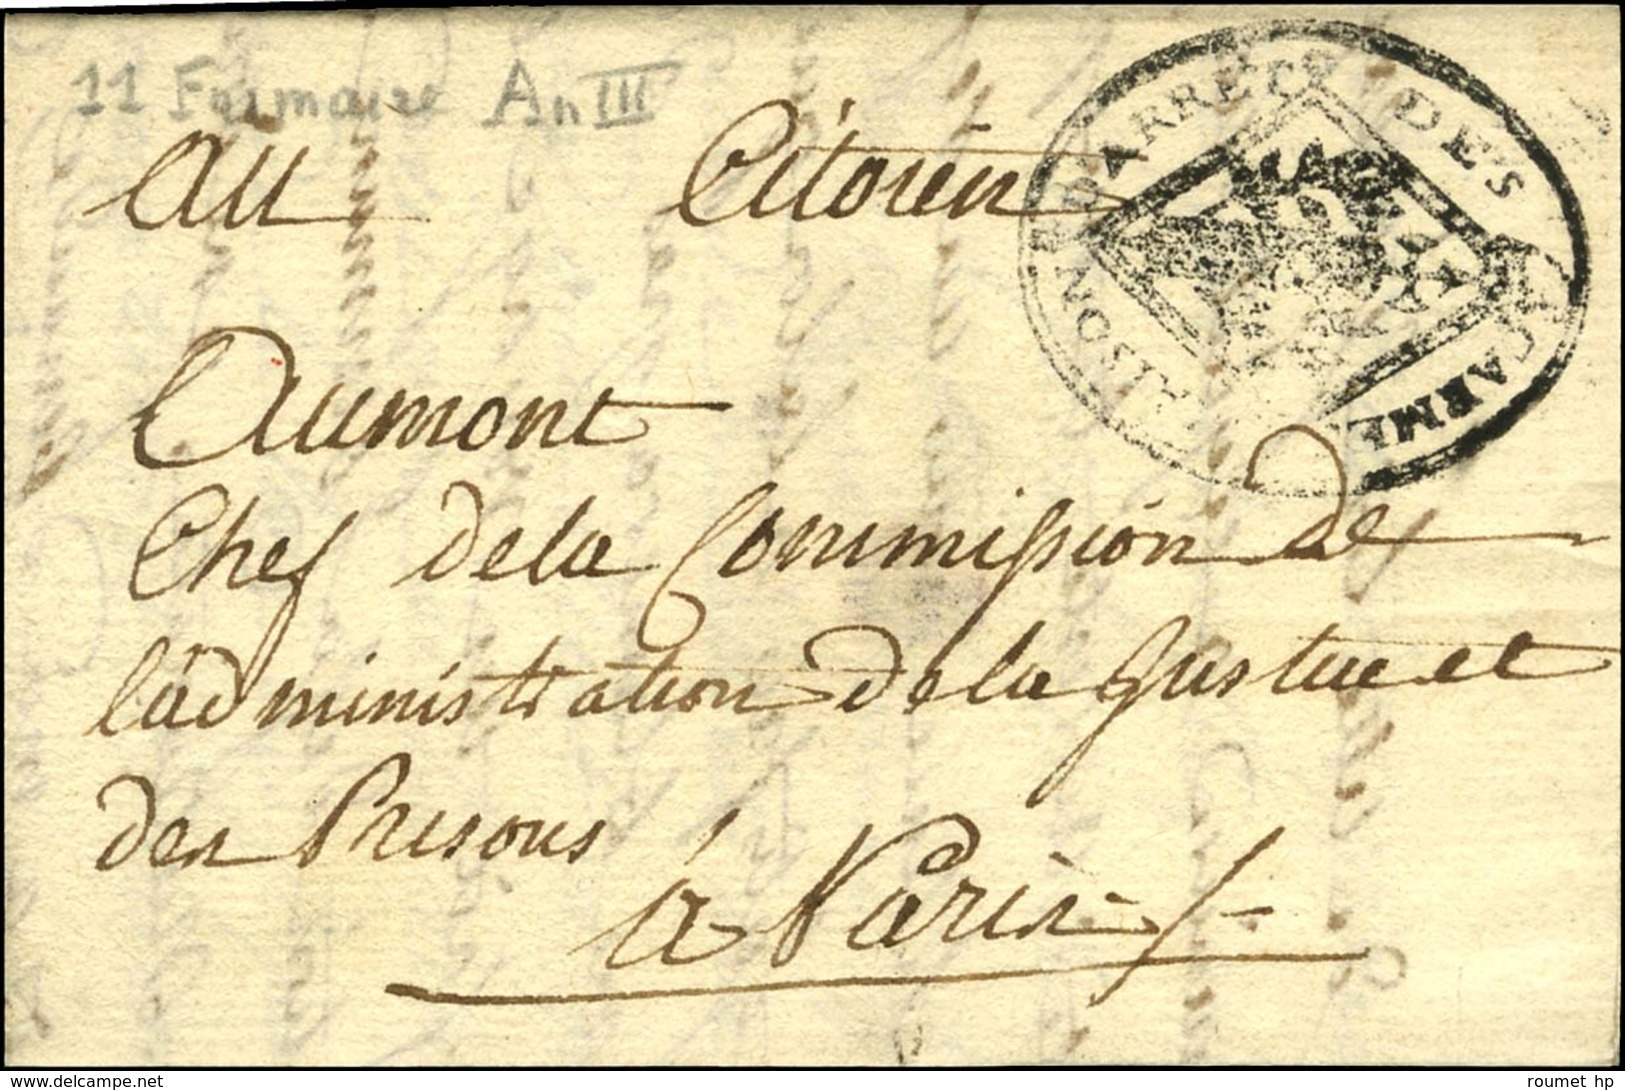 11 Frimaire An III
au Citoien
MAISON D'ARRET DES CARMES
Aumont
Chef de la Commission de
l'administration de la Justice et
des Prisons
à Paris
delcampe.net
roumet hp